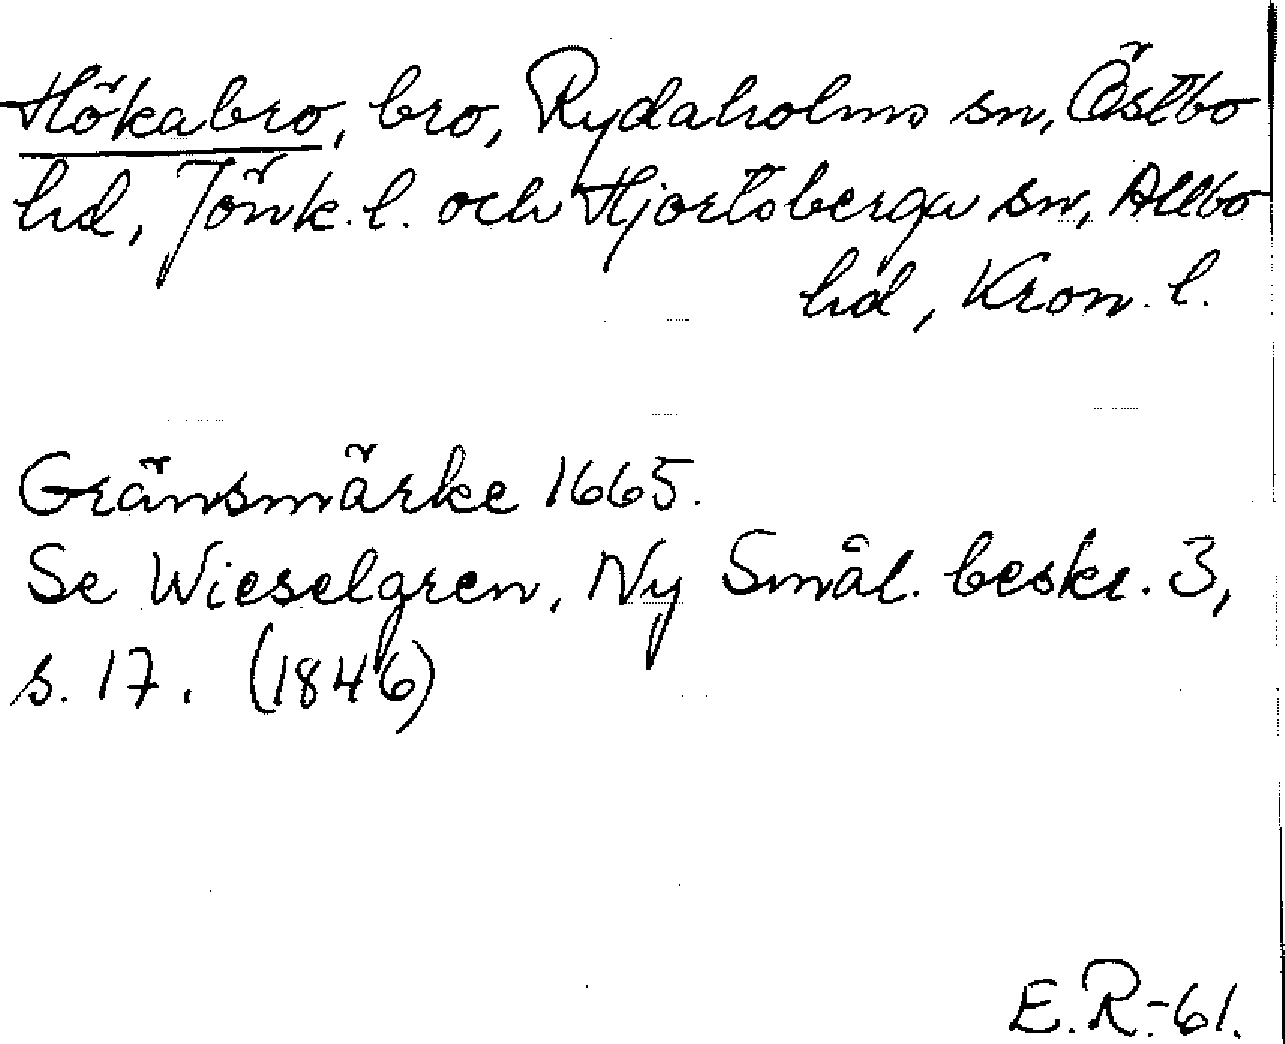 Hökabro, bro, Rydaholms sn, Östbo
hd, Jönk. l. och Hjortsberga sn, Allbo
hd, Kron. l.
Gränsmärke 1665.
Se Wieselgren, Ny Smål. beskr. 3,
s. 17. (1846)
E.R.-61.